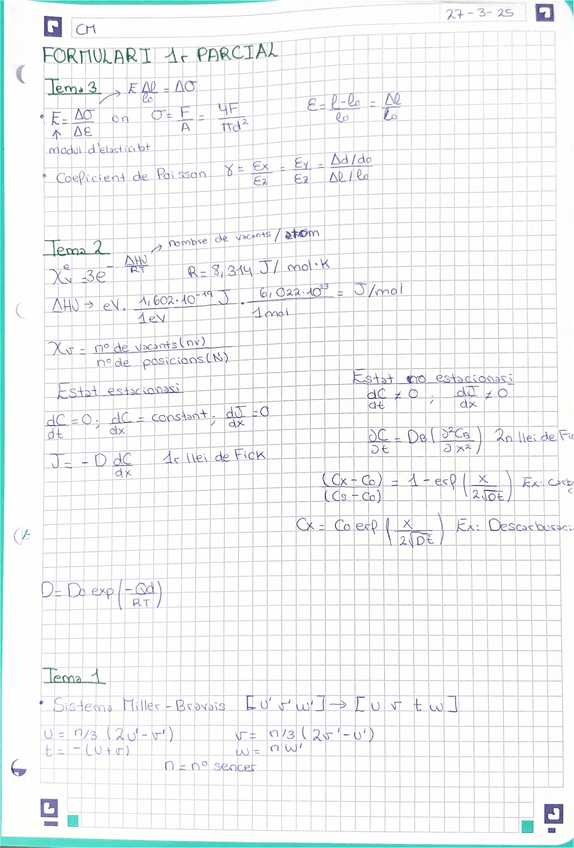 27-3-25
CM
FORMULARI 1r PARCIAL
Tema 3
E Δl/l₀ = Δσ
• E = Δσ/Δε on σ = F/A = 4F/πd² ε = l-l₀/l₀ = Δl/l₀
modul d'elasticitat
• Coeficient de Poisson γ = εx/εz = εy/εz = Δd/d₀ / Δl/l₀
Tema 2
nombre de vacants/atom
Xᵥᵉ = 3e^(-ΔHU/RT) R = 8,314 J/mol·K
ΔHU → eV · 1,602·10⁻¹⁹ J/1eV · 6,022·10²³/1mol = J/mol
Xv = nº de vacants(nv)/nº de posicions(N)
Estat estacionari
dC/dt = 0; dC/dx = constant; dJ/dx = 0
J = -D dC/dx 1r llei de Fick
Estat no estacionari
dC/dt ≠ 0; dJ/dx ≠ 0
∂C/∂t = D_B (∂²C_B/∂x²) 2n llei de Fic
(Cx-C₀)/(Cs-C₀) = 1-erf(x/2√Dt) Ex: carb
Cx = C₀ erf(x/2√Dt) Ex: Descarburaci
D = D₀ exp(-Qd/RT)
Tema 1
• Sistema Miller-Bravais [u' v' w'] → [u v t w]
u = n/3 (2u'-v') v = n/3 (2v'-u')
t = -(u+v) w = nw'
n = nº sencer